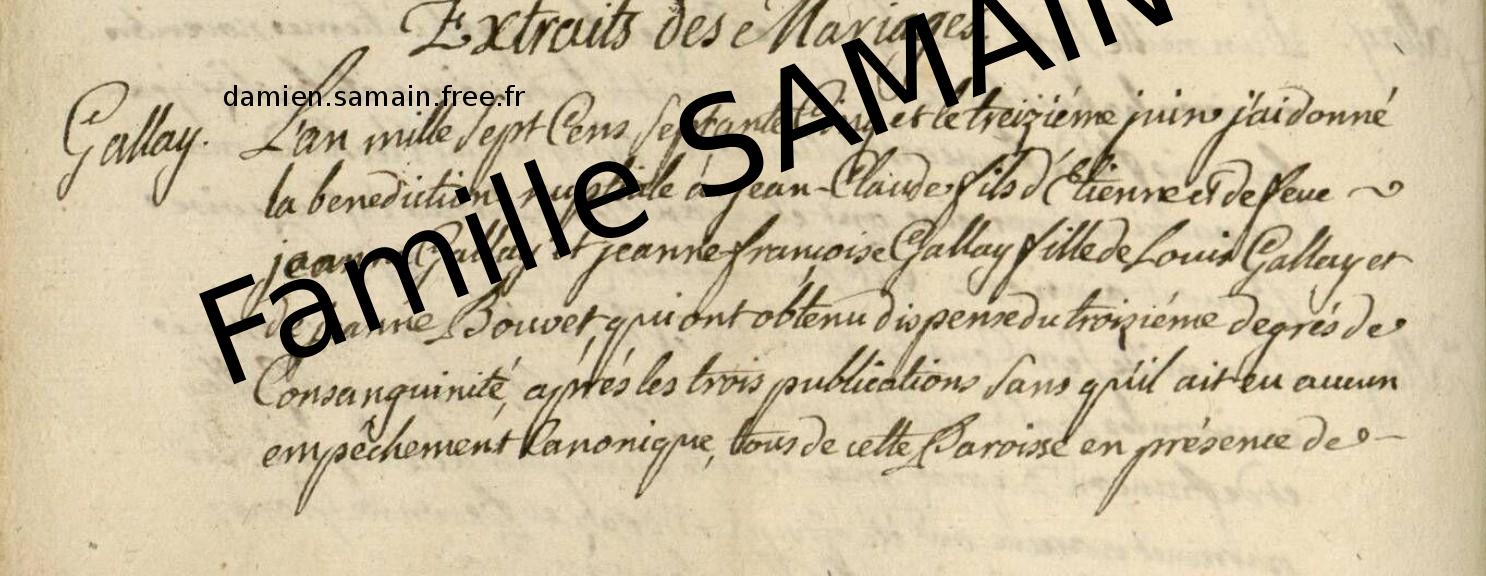 Extraits des Mariages.
damien.samain.free.fr
Famille SAMAIN
Gallay.
L'an mille sept Cens septante Cinq et le treiziéme juin j'ai donné
la benediction nuptiale à jean-Claude fils d'Etienne et de feue
jeanne Gallay et jeanne françoise Gallay fille de Louis Gallay et
de jeanne Bouvet, qui ont obtenu dispense du troiziéme degrés de
Consanguinité, aprés les trois publications sans qu'il ait eu aucun
empêchement Canonique, tous de cette Paroisse en présence de